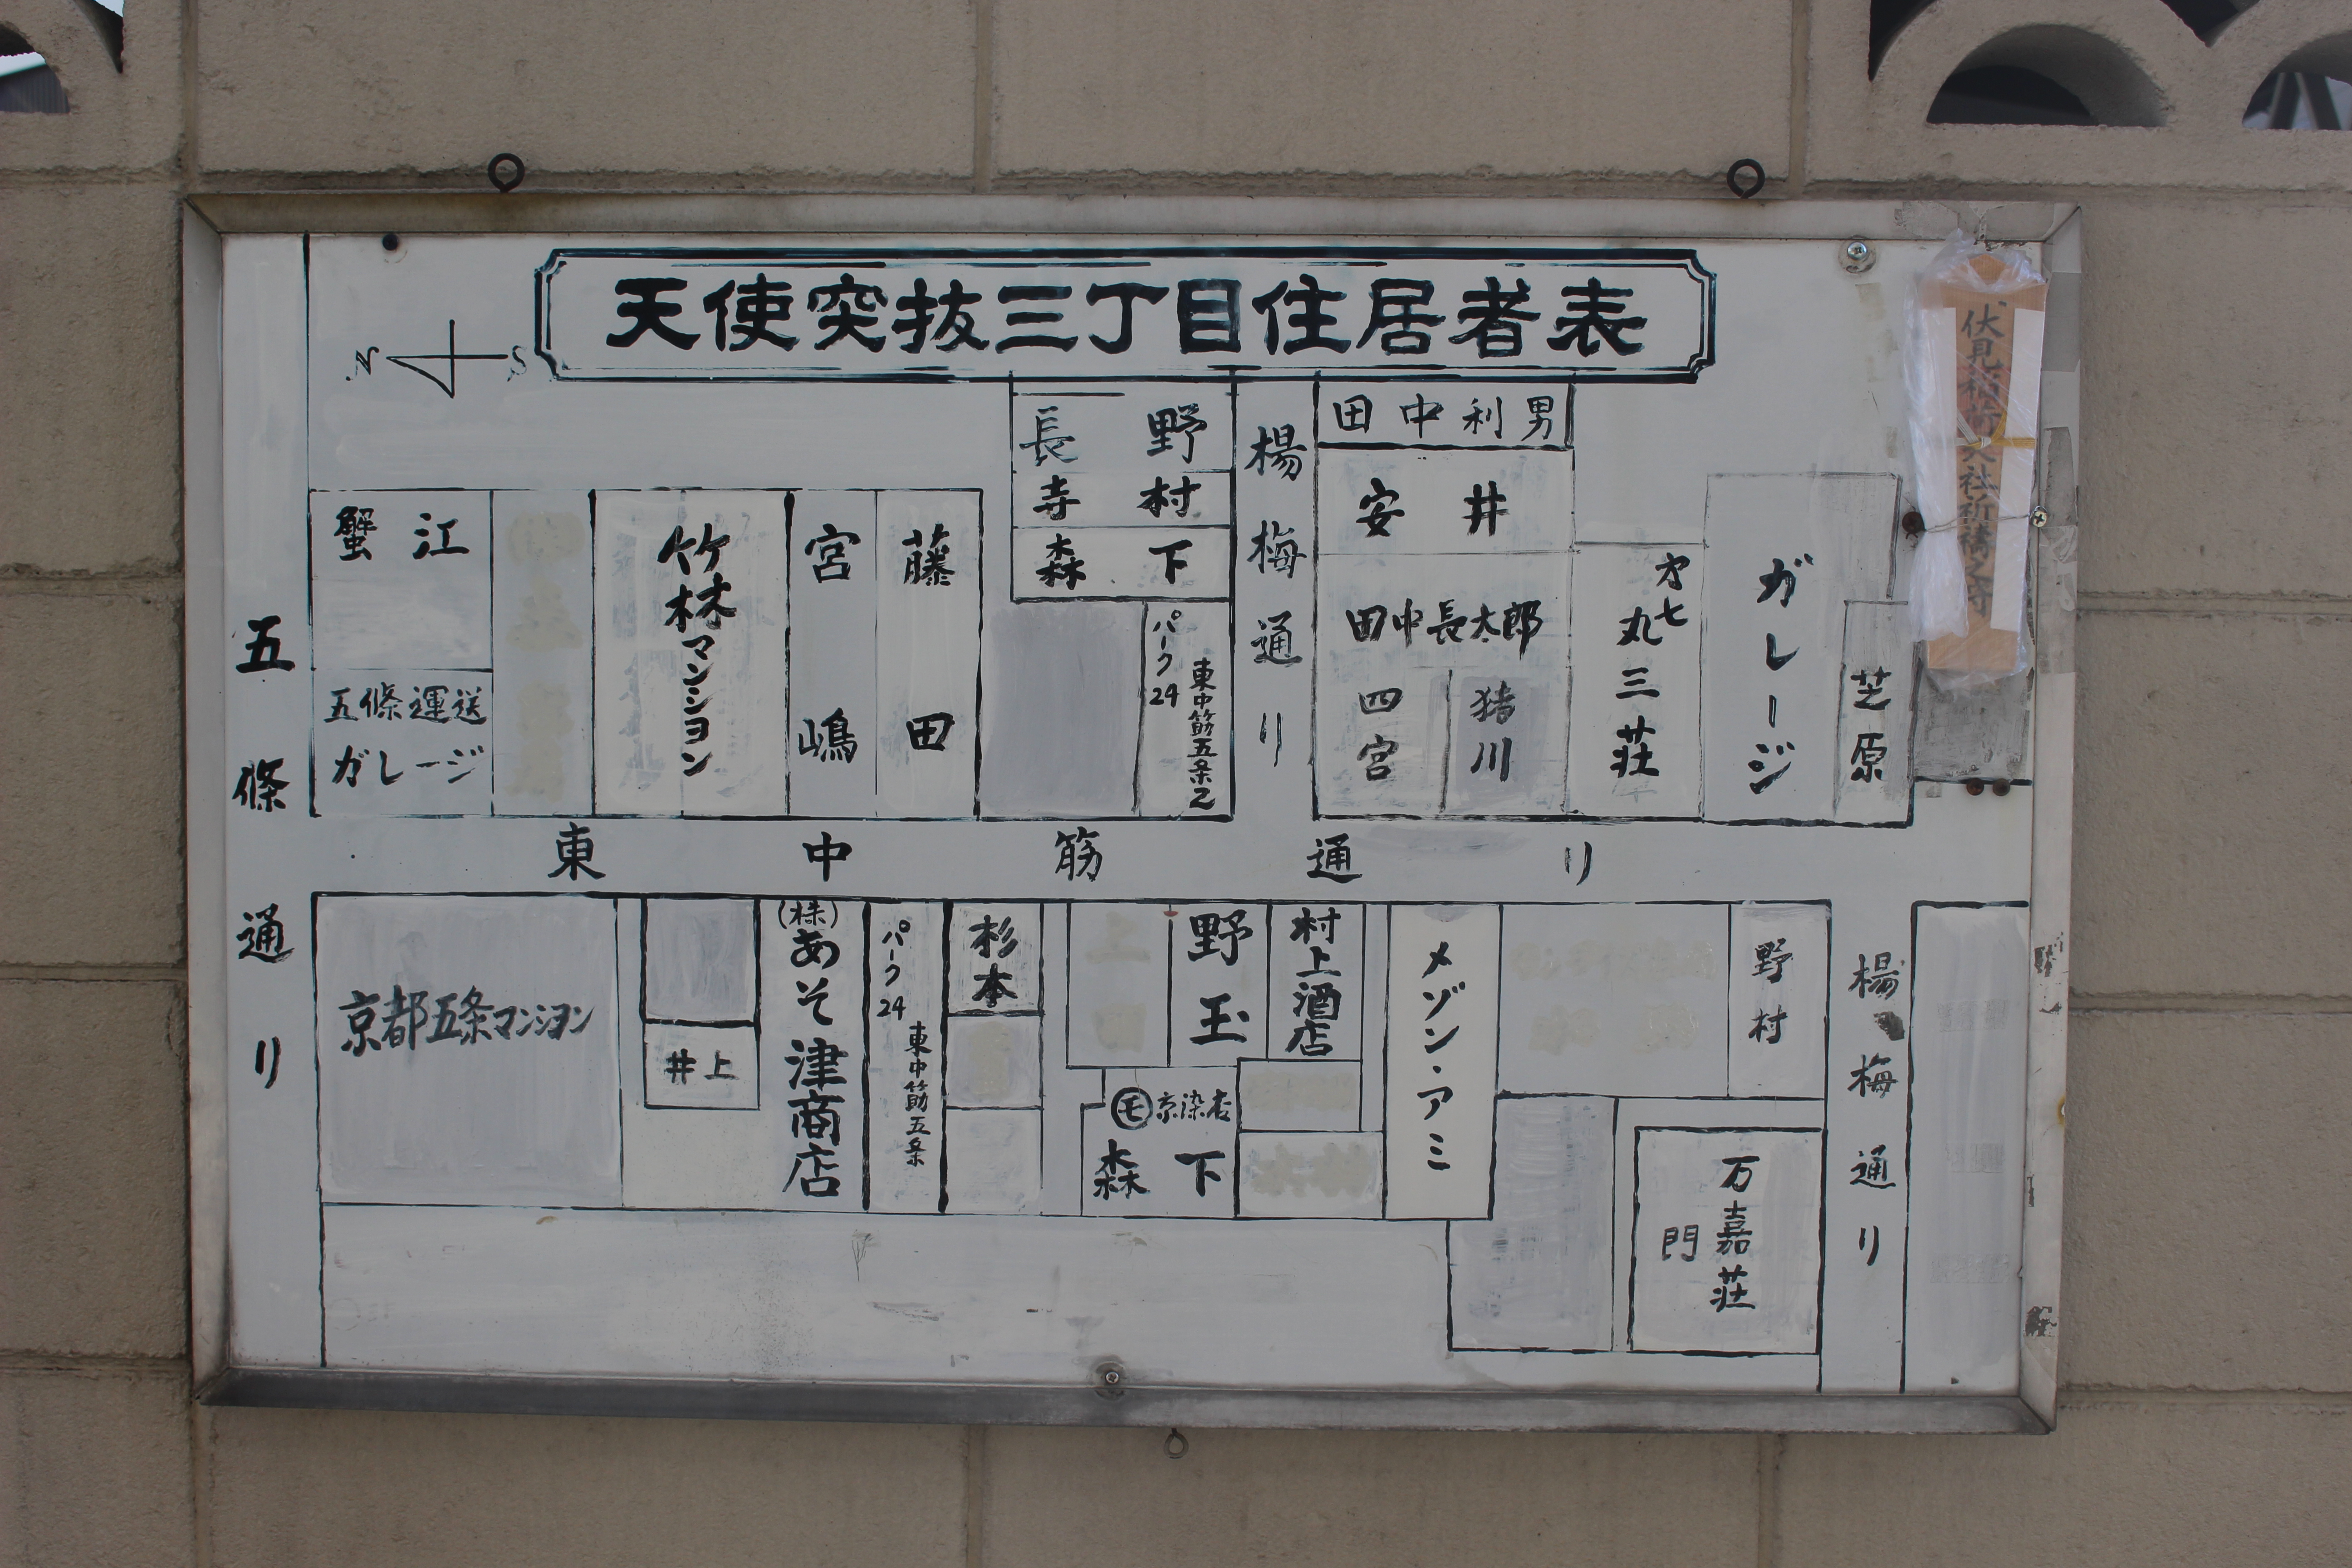 天使突抜三丁目住居者表
N S
伏見稲荷大社祈祷之守
五條通り
蟹江
五條運送
ガレージ
竹林マンション
宮嶋
藤田
長野
寺村
森下
パーク24
東中筋五条2
楊梅通り
田中利男
安井
田中長太郎
四宮
猪川
才七
丸三荘
ガレージ
芝原
東中筋通り
京都五条マンション
井上
(株)あそ津商店
パーク24
東中筋五条
杉本
野玉
村上酒店
モ京染店
森下
メゾン・アミ
野村
万嘉荘
門
楊梅通り